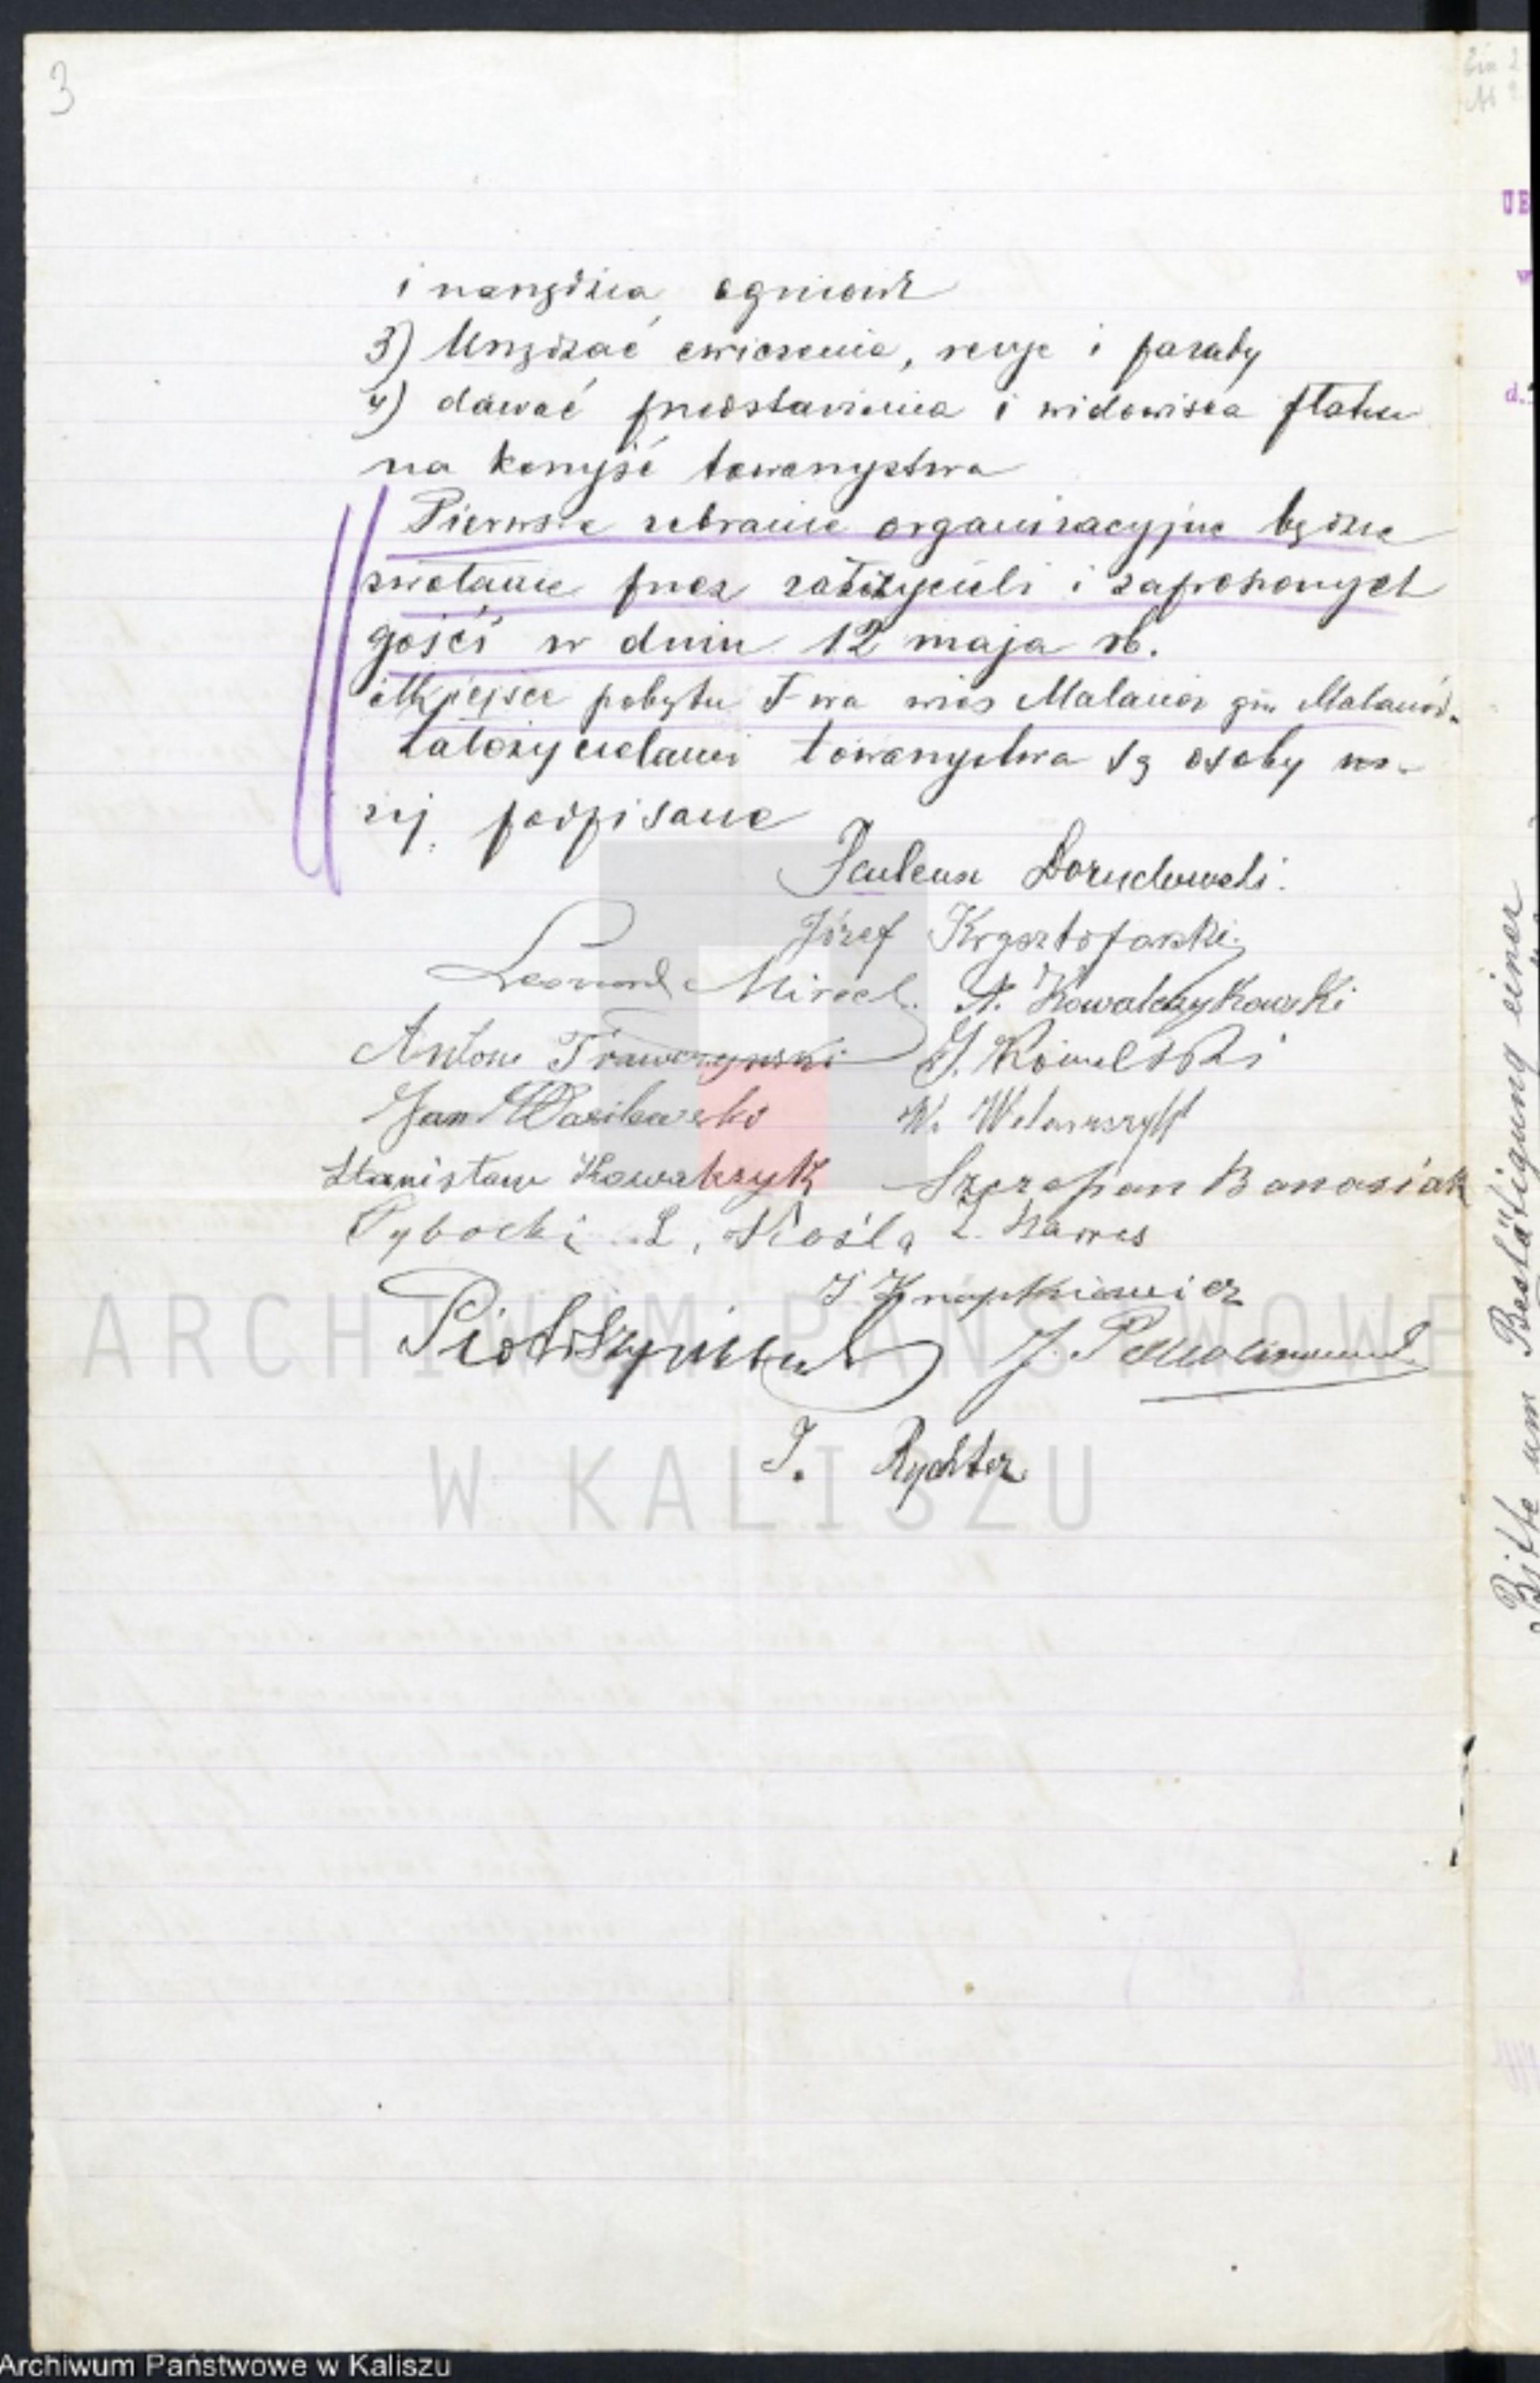 3
i narzędzia ogniowe
3) Urządzać ćwiczenia, rewje i parady
4) dawać przedstawienia i widowiska płatne
na korzyść towarzystwa
Pierwsze zebranie organizacyjne będzie
zwołane przez założycieli i zaproszonych
gości w dniu 12 maja rb.
Miejsce pobytu T-wa wieś Malanów gm Malanów.
Założycielami towarzystwa są osoby ni-
żej podpisane
Doruchowski.
Józef Krysztofarski
Leonard Mirecl. A. Kowalczykowski
Antoni Trawczynski J. Kowalski
Jan Wasilewski W.
Stanisław Kowalczyk Szczepan Banasiak
Rybocki L, Kośla
J
Piotr J.
J. Rychter
Bitte um Bestätigung einer
ARCHIWUM PAŃSTWOWE
W KALISZU
Archiwum Państwowe w Kaliszu